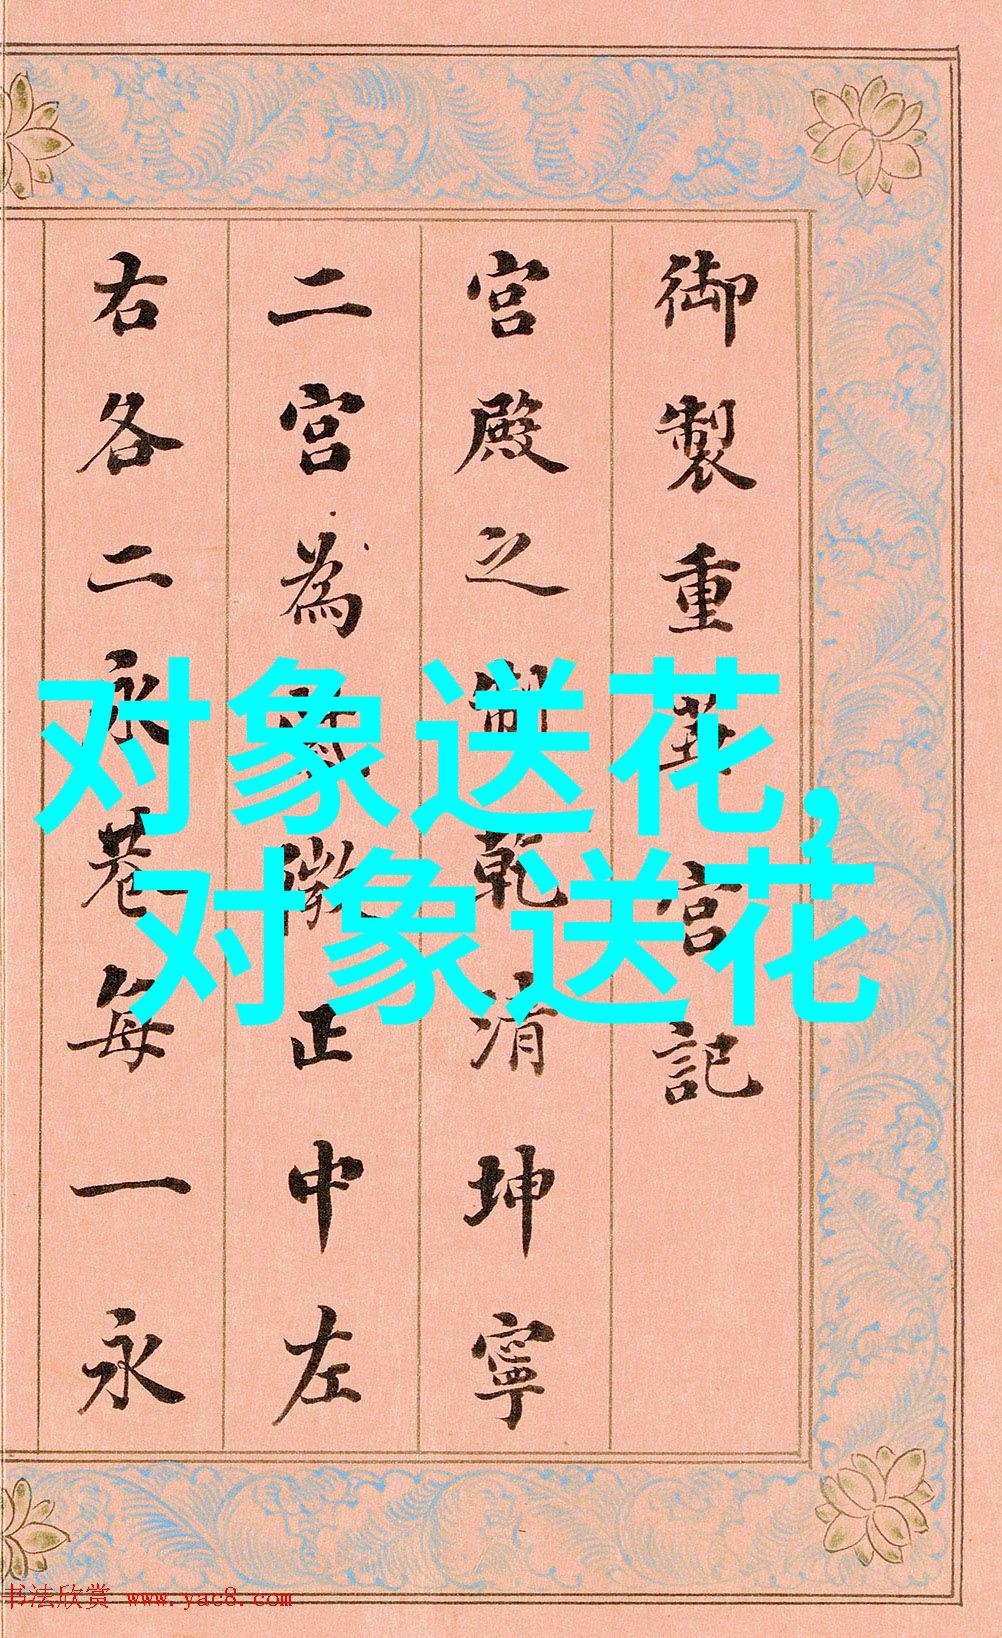 御製重華宮記
宮殿之制乾清坤寧
二宮為紫微正中左
右各二永巷每一永
对象送花,
对象送花
书法欣赏 www.yac8.com